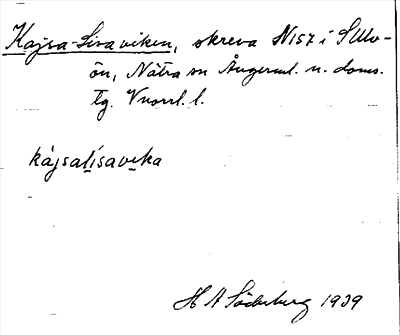 Kajsa-Lisaviken, skreva N157 i S Ulv-
ön, Nätra sn Ångerml. n. doms.
tg. Vnorrl. l.
kájsalísavika
H A Söderberg 1939